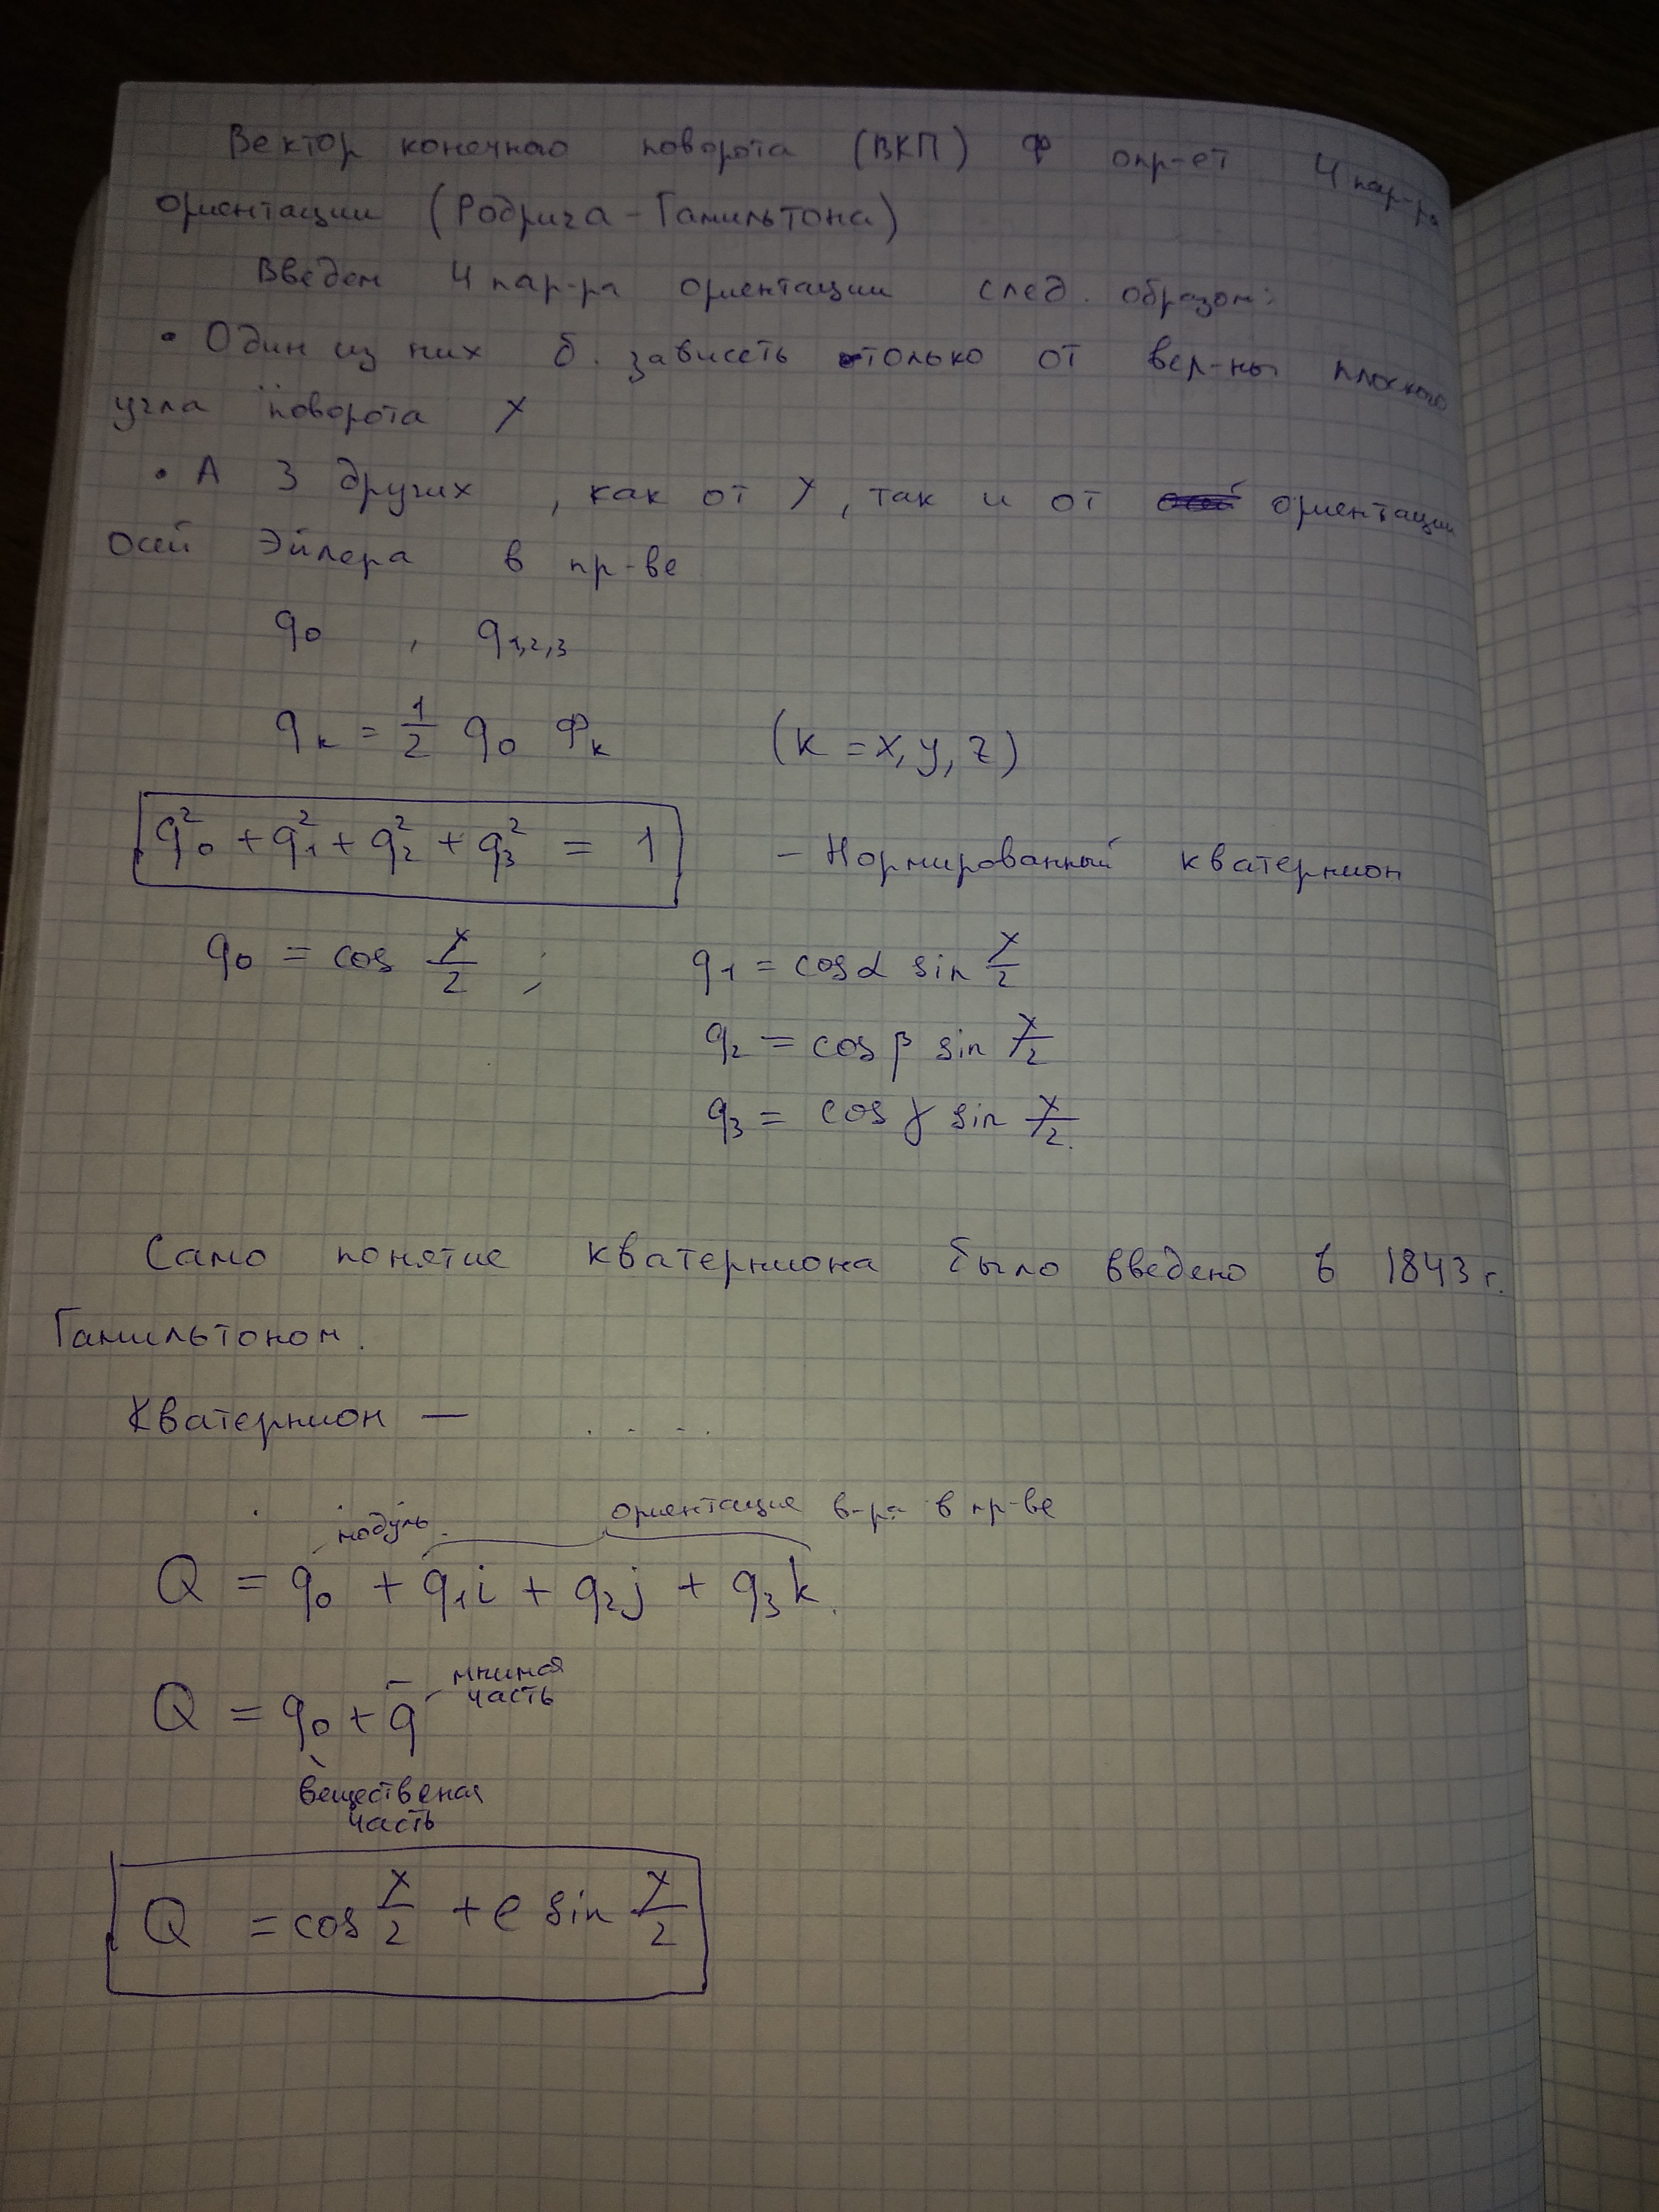 Вектор конечного поворота (ВКП) Ф опр-ет 4 пар-ра
ориентации (Родрига-Гамильтона)
Введем 4 пар-ра ориентации след. образом:
• Один из них б. зависеть только от вел-ны плоского
угла поворота χ
• А 3 других, как от χ, так и от ориентации
осей Эйлера в пр-ве
q₀ , q₁,₂,₃
qₖ = 1/2 q₀ Фₖ (k = x, y, z)
q₀² + q₁² + q₂² + q₃² = 1 – Нормированный кватернион
q₀ = cos χ/2 ; q₁ = cos α sin χ/2
q₂ = cos β sin χ/2
q₃ = cos γ sin χ/2
Само понятие кватерниона было введено в 1843 г.
Гамильтоном.
Кватернион — . . . .
модуль ориентация в-ра в пр-ве
Q = q₀ + q₁i + q₂j + q₃k.
мнимая
часть
Q = q₀ + q̄
вещественая
часть
Q = cos χ/2 + e sin χ/2